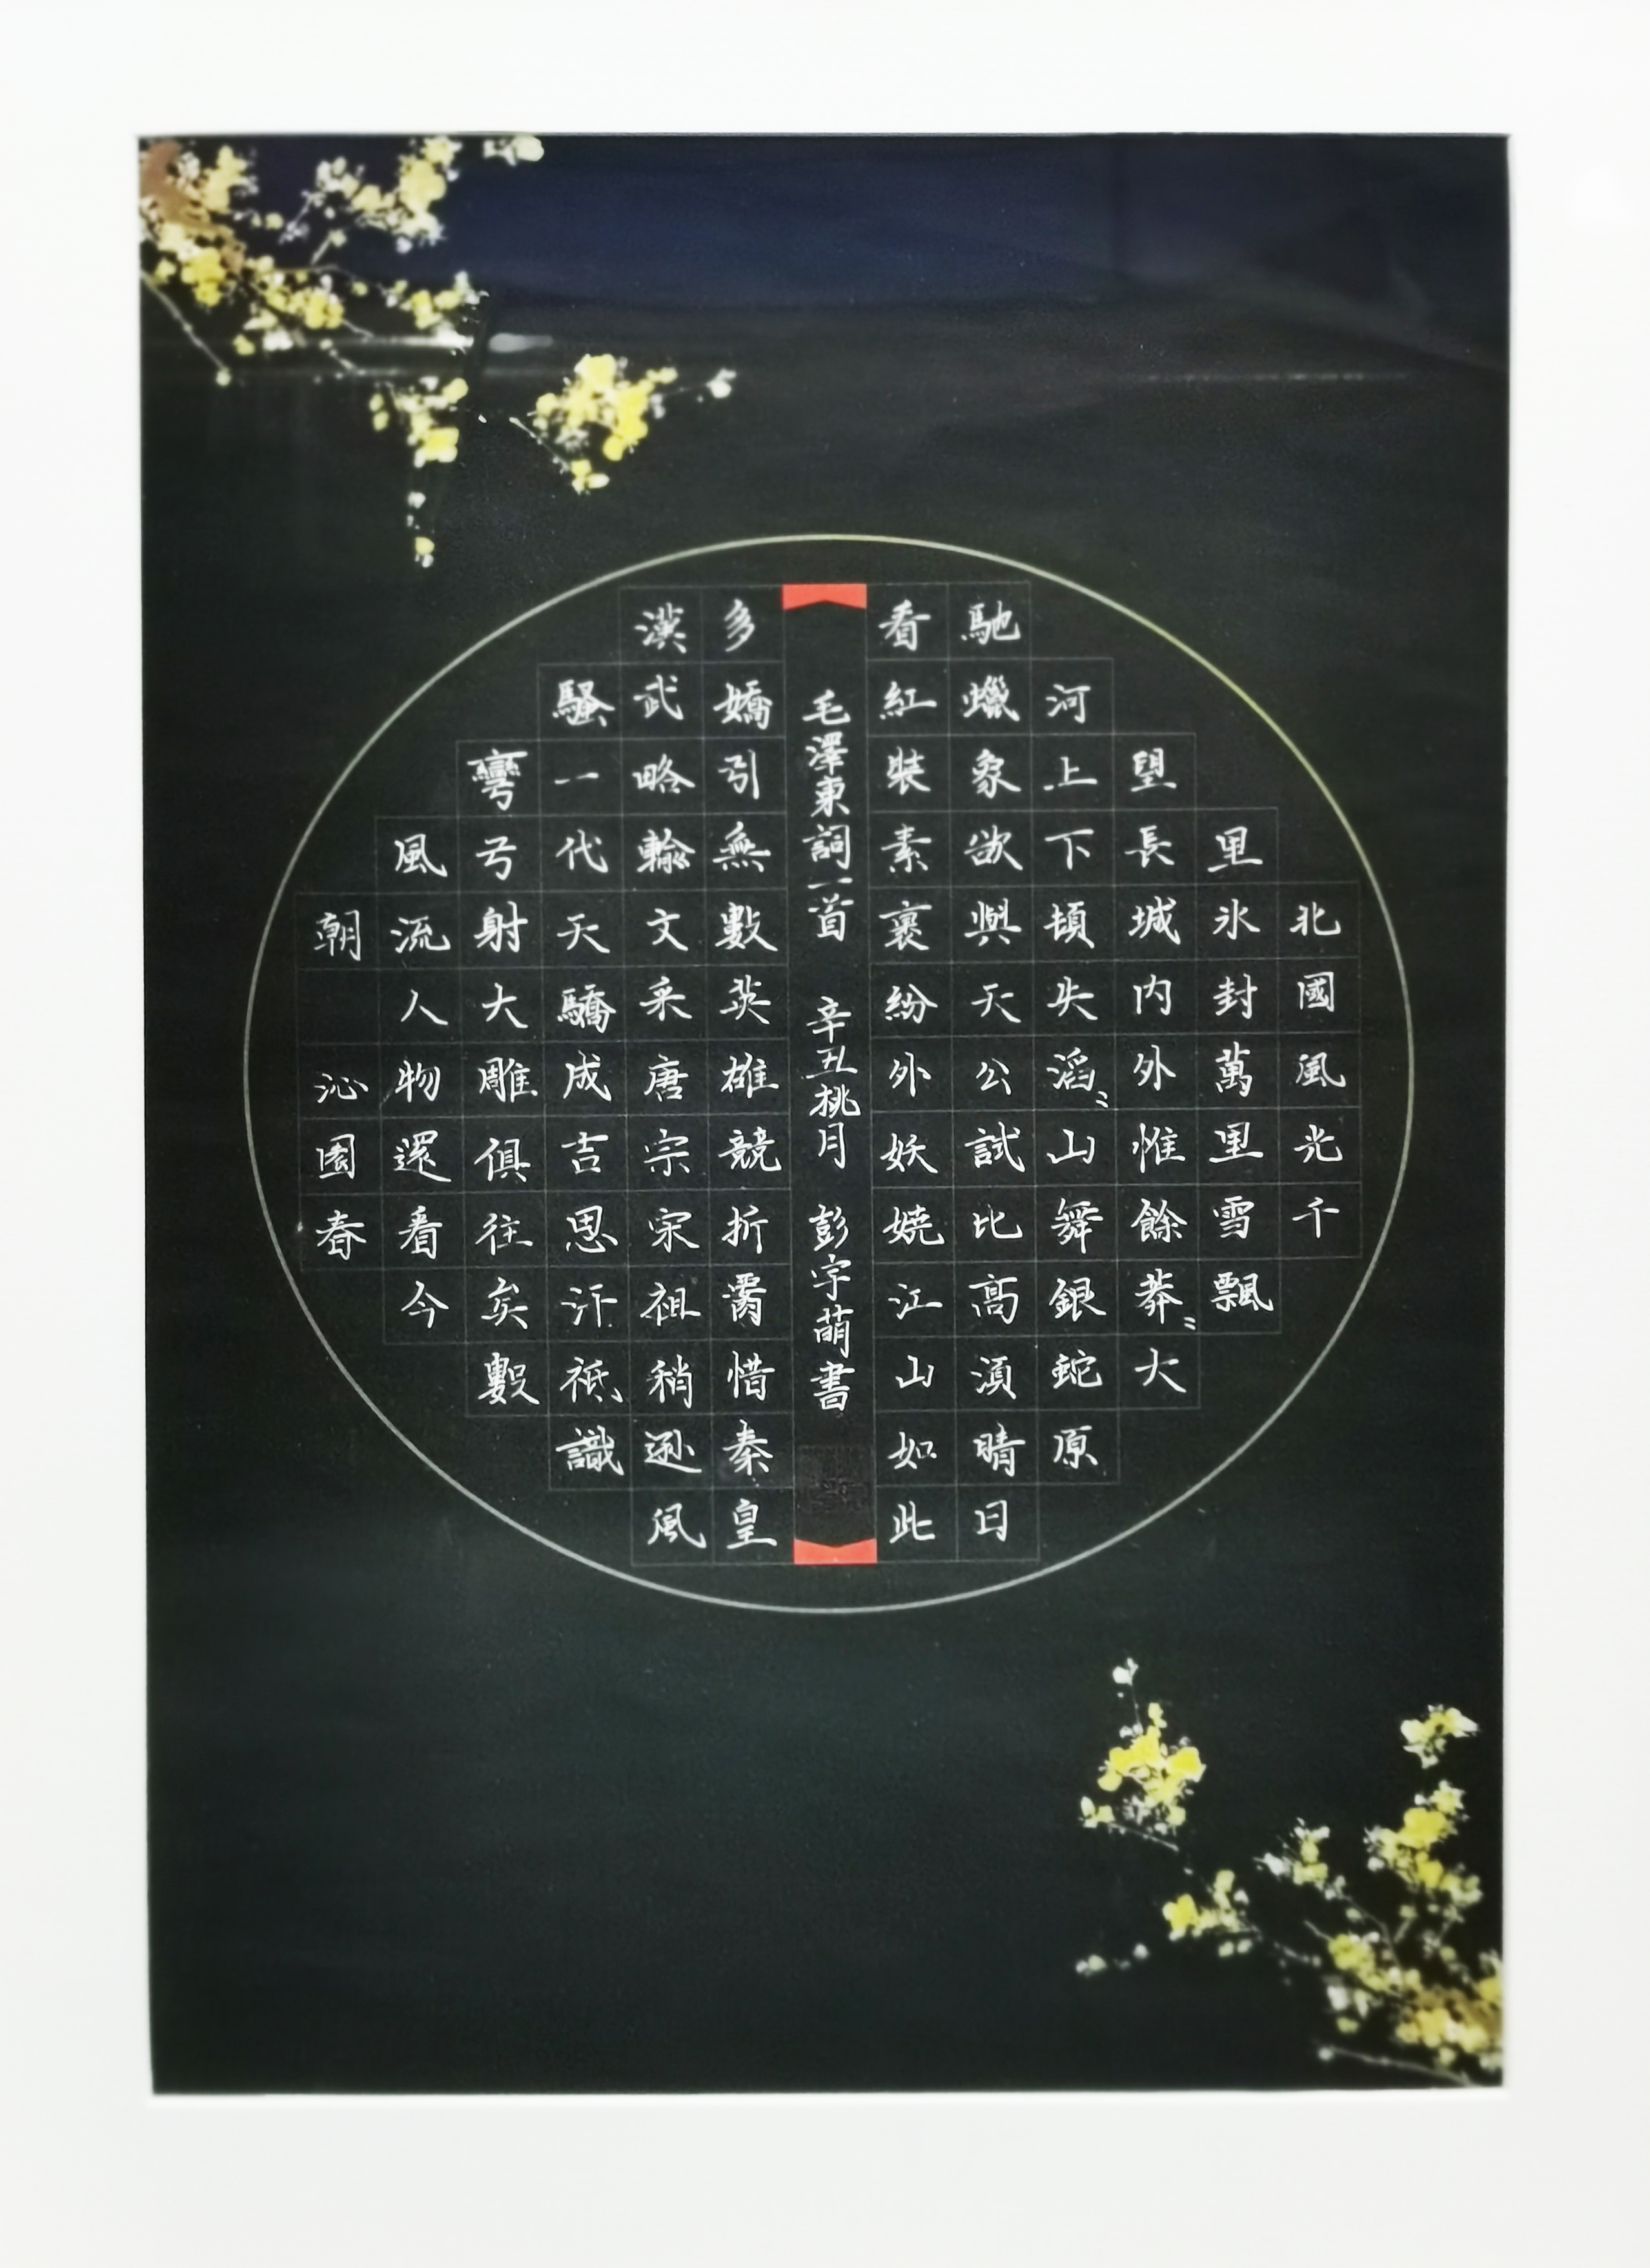 北國風光千
里氷封萬里雪飄
望長城内外惟餘莽〻大
河上下頓失滔〻山舞銀蛇原
馳蠟象欲與天公試比高須晴日
看紅裝素裹紛外妖嬈江山如此
毛澤東詞一首 辛丑桃月 彭宇萌書
多嬌引無數英雄競折腰惜秦皇
漢武略輸文采唐宗宋祖稍遜風
騷一代天驕成吉思汗祗識
彎弓射大雕俱往矣數
風流人物還看今
朝 沁園春